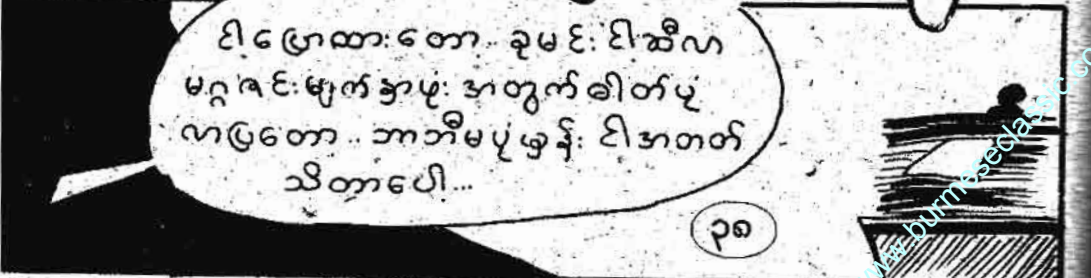 ငါပြောထားတော့.. ခုမင်း ငါ့ဆီလာ
မဂ္ဂဇင်းမျက်နှာဖုံး အတွက်ဓါတ်ပုံ
လာပြတော့.. ဘာဘီမပုံမှန်း ငါအတတ်
သိတာပေါ့...
၃၈
www.burmeseclassic.co